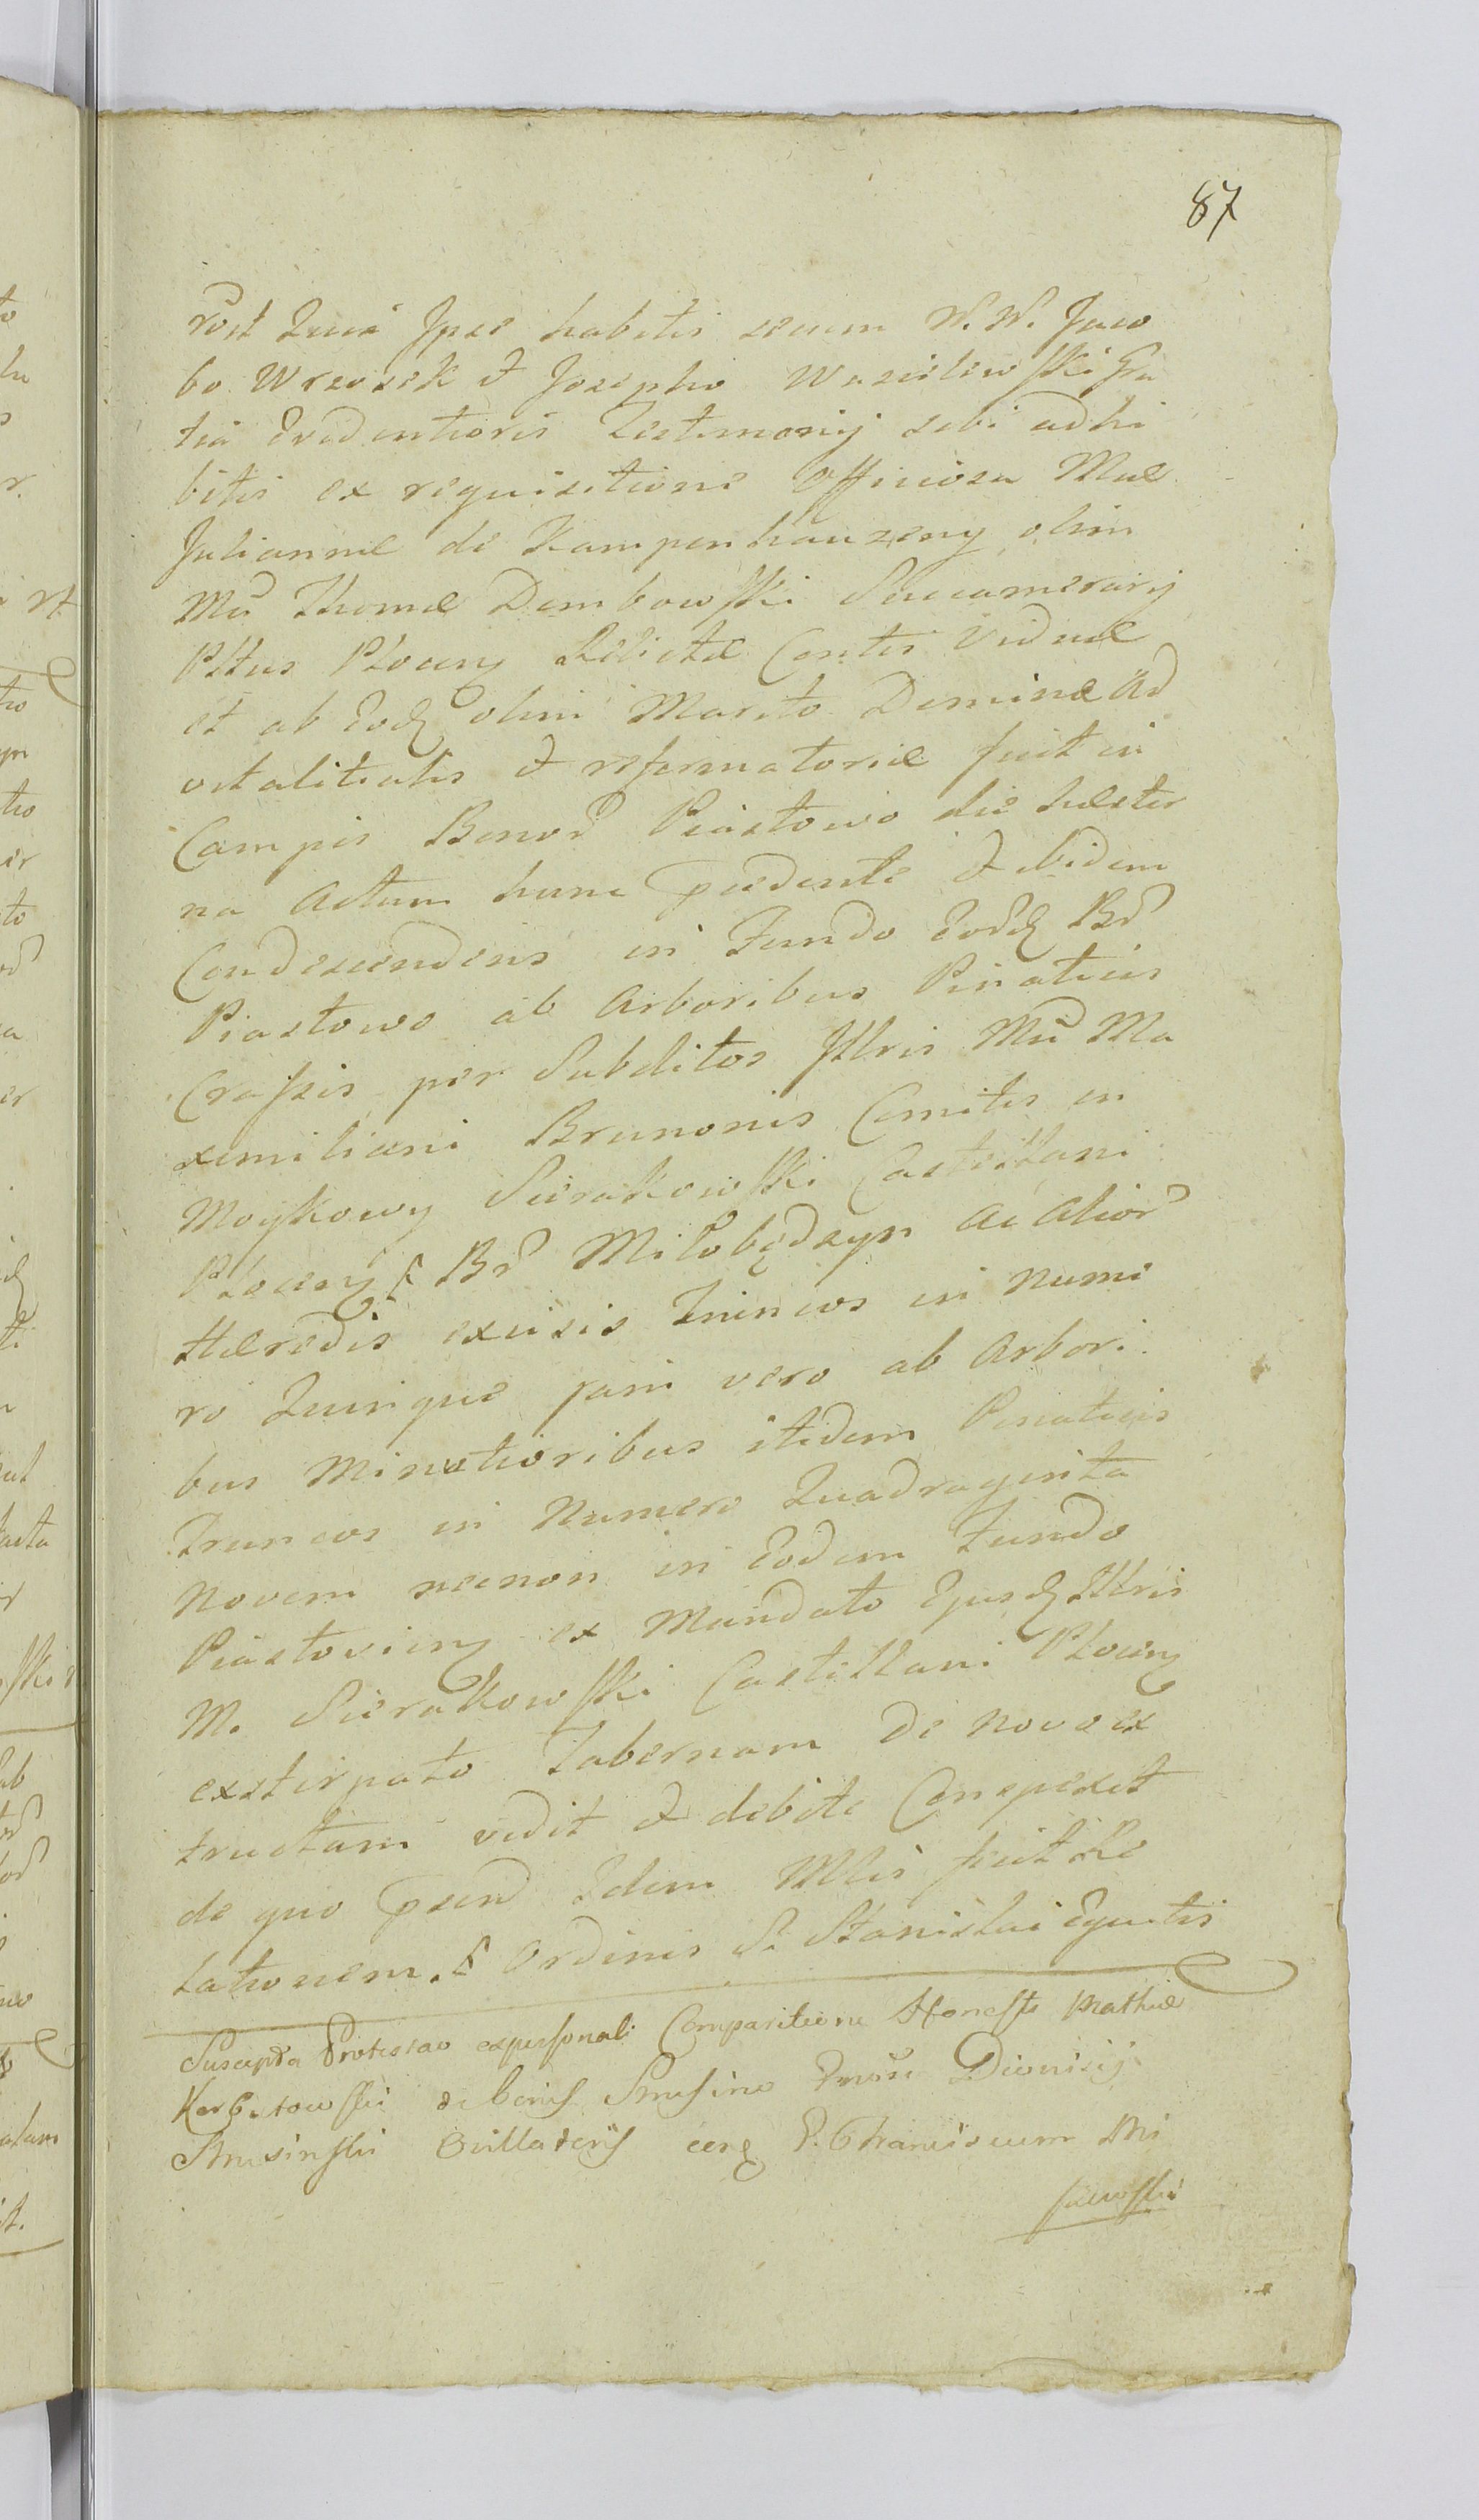 87
Post Quia Ipse habitis secum W. W. Jaco
bo Wrzosek et Josepho Wasilewski Gra
tia Evidentioris Testimonij sibi adhi
bitis ex requisitione Officiosa Mae
Julianne de Kampenhauzeny olim
Mci Thomæ Dembowski Succamerarij
Pltus Płocen Relictæ Contis Viduæ
et ab Eodq olim Marito Dominæ Ad
vitalitialis et reformatoriæ fuit in
Campis Bonor Piastowo die hester
na Actum hunc præcedente et ibidem
Condescendens in Fundo Eordq Br
Piastowo ab Arboribus Pinaticis
Crassis per Subditos Illris Mci Ma
ximiliani Brunonis Comitis in
Moykowy Sierakowski Castellani
Płocen Br Miłobędzyn Ac Alior
Hæredis excisis Truncos in Nume
ro Quinque jam vero ab Arbori
bus Minutioribus itidem Pinaticis
Truncos in Numero Quadraginta
Novem necnon in Eodem Fundo
Piastovien ex Mandato Ejusdq Illris
M. Sierakowski Castellani Płocen
exstirpato Tabernam de novo ex
tructam vidit et debite Conspexit
de quo præmd Idem Mtis fecit Re
lationem. Ordinis S. Stanislai Equitis
Suscepta Protestao ex personali Comparitione Honesti Mathiæ
de bonis Smusino Dionisij
Smusinski P. Franciscum Mi